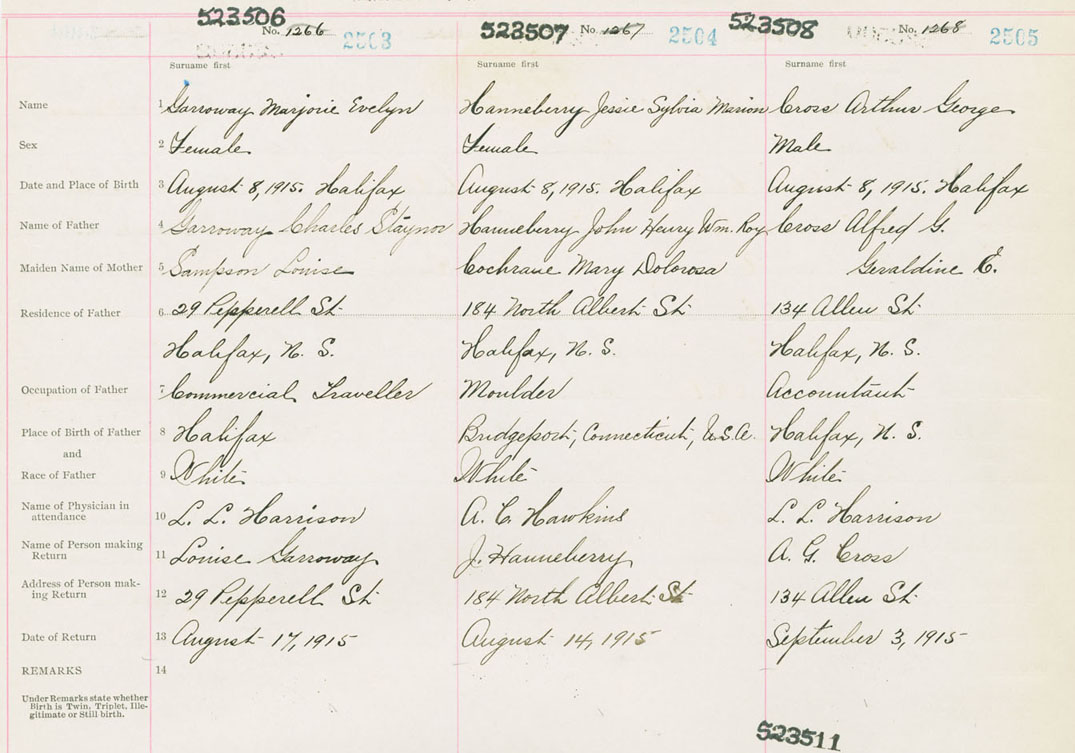 523506 523507 523508
No. 1266 2503 No. 1267 2504 No. 1268 2505
Surname first Surname first Surname first
Name 1 Garroway Marjorie Evelyn Hanneberry Jessie Sylvia Marion Cross Arthur George
Sex 2 Female Female Male
Date and Place of Birth 3 August 8, 1915. Halifax August 8, 1915. Halifax August 8, 1915. Halifax
Name of Father 4 Garroway Charles Staynor Hanneberry John Henry Wm. Roy Cross Alfred G.
Maiden Name of Mother 5 Sampson Louise Cochrane Mary Dolorosa Geraldine E.
Residence of Father 6 29 Pepperell St. 184 North Albert St. 134 Allen St.
Halifax, N. S. Halifax, N. S. Halifax, N. S.
Occupation of Father 7 Commercial Traveller Moulder Accountant
Place of Birth of Father 8 Halifax Bridgeport, Connecticut, U.S.A. Halifax, N. S.
and
Race of Father 9 White White White
Name of Physician in
attendance 10 L. L. Harrison A. C. Hawkins L. L. Harrison
Name of Person making
Return 11 Louise Garroway J. Hanneberry A. G. Cross
Address of Person mak-
ing Return 12 29 Pepperell St. 184 North Albert St. 134 Allen St.
Date of Return 13 August 17, 1915 August 14, 1915 September 3, 1915
REMARKS 14
Under Remarks state whether
Birth is Twin, Triplet, Ille-
gitimate or Still birth.
523511